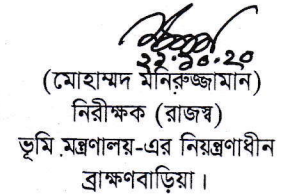 ২২.১০.২০
(মোহাম্মদ মনিরুজ্জামান)
নিরীক্ষক (রাজস্ব)
ভূমি মন্ত্রণালয়-এর নিয়ন্ত্রণাধীন
ব্রাক্ষণবাড়িয়া।